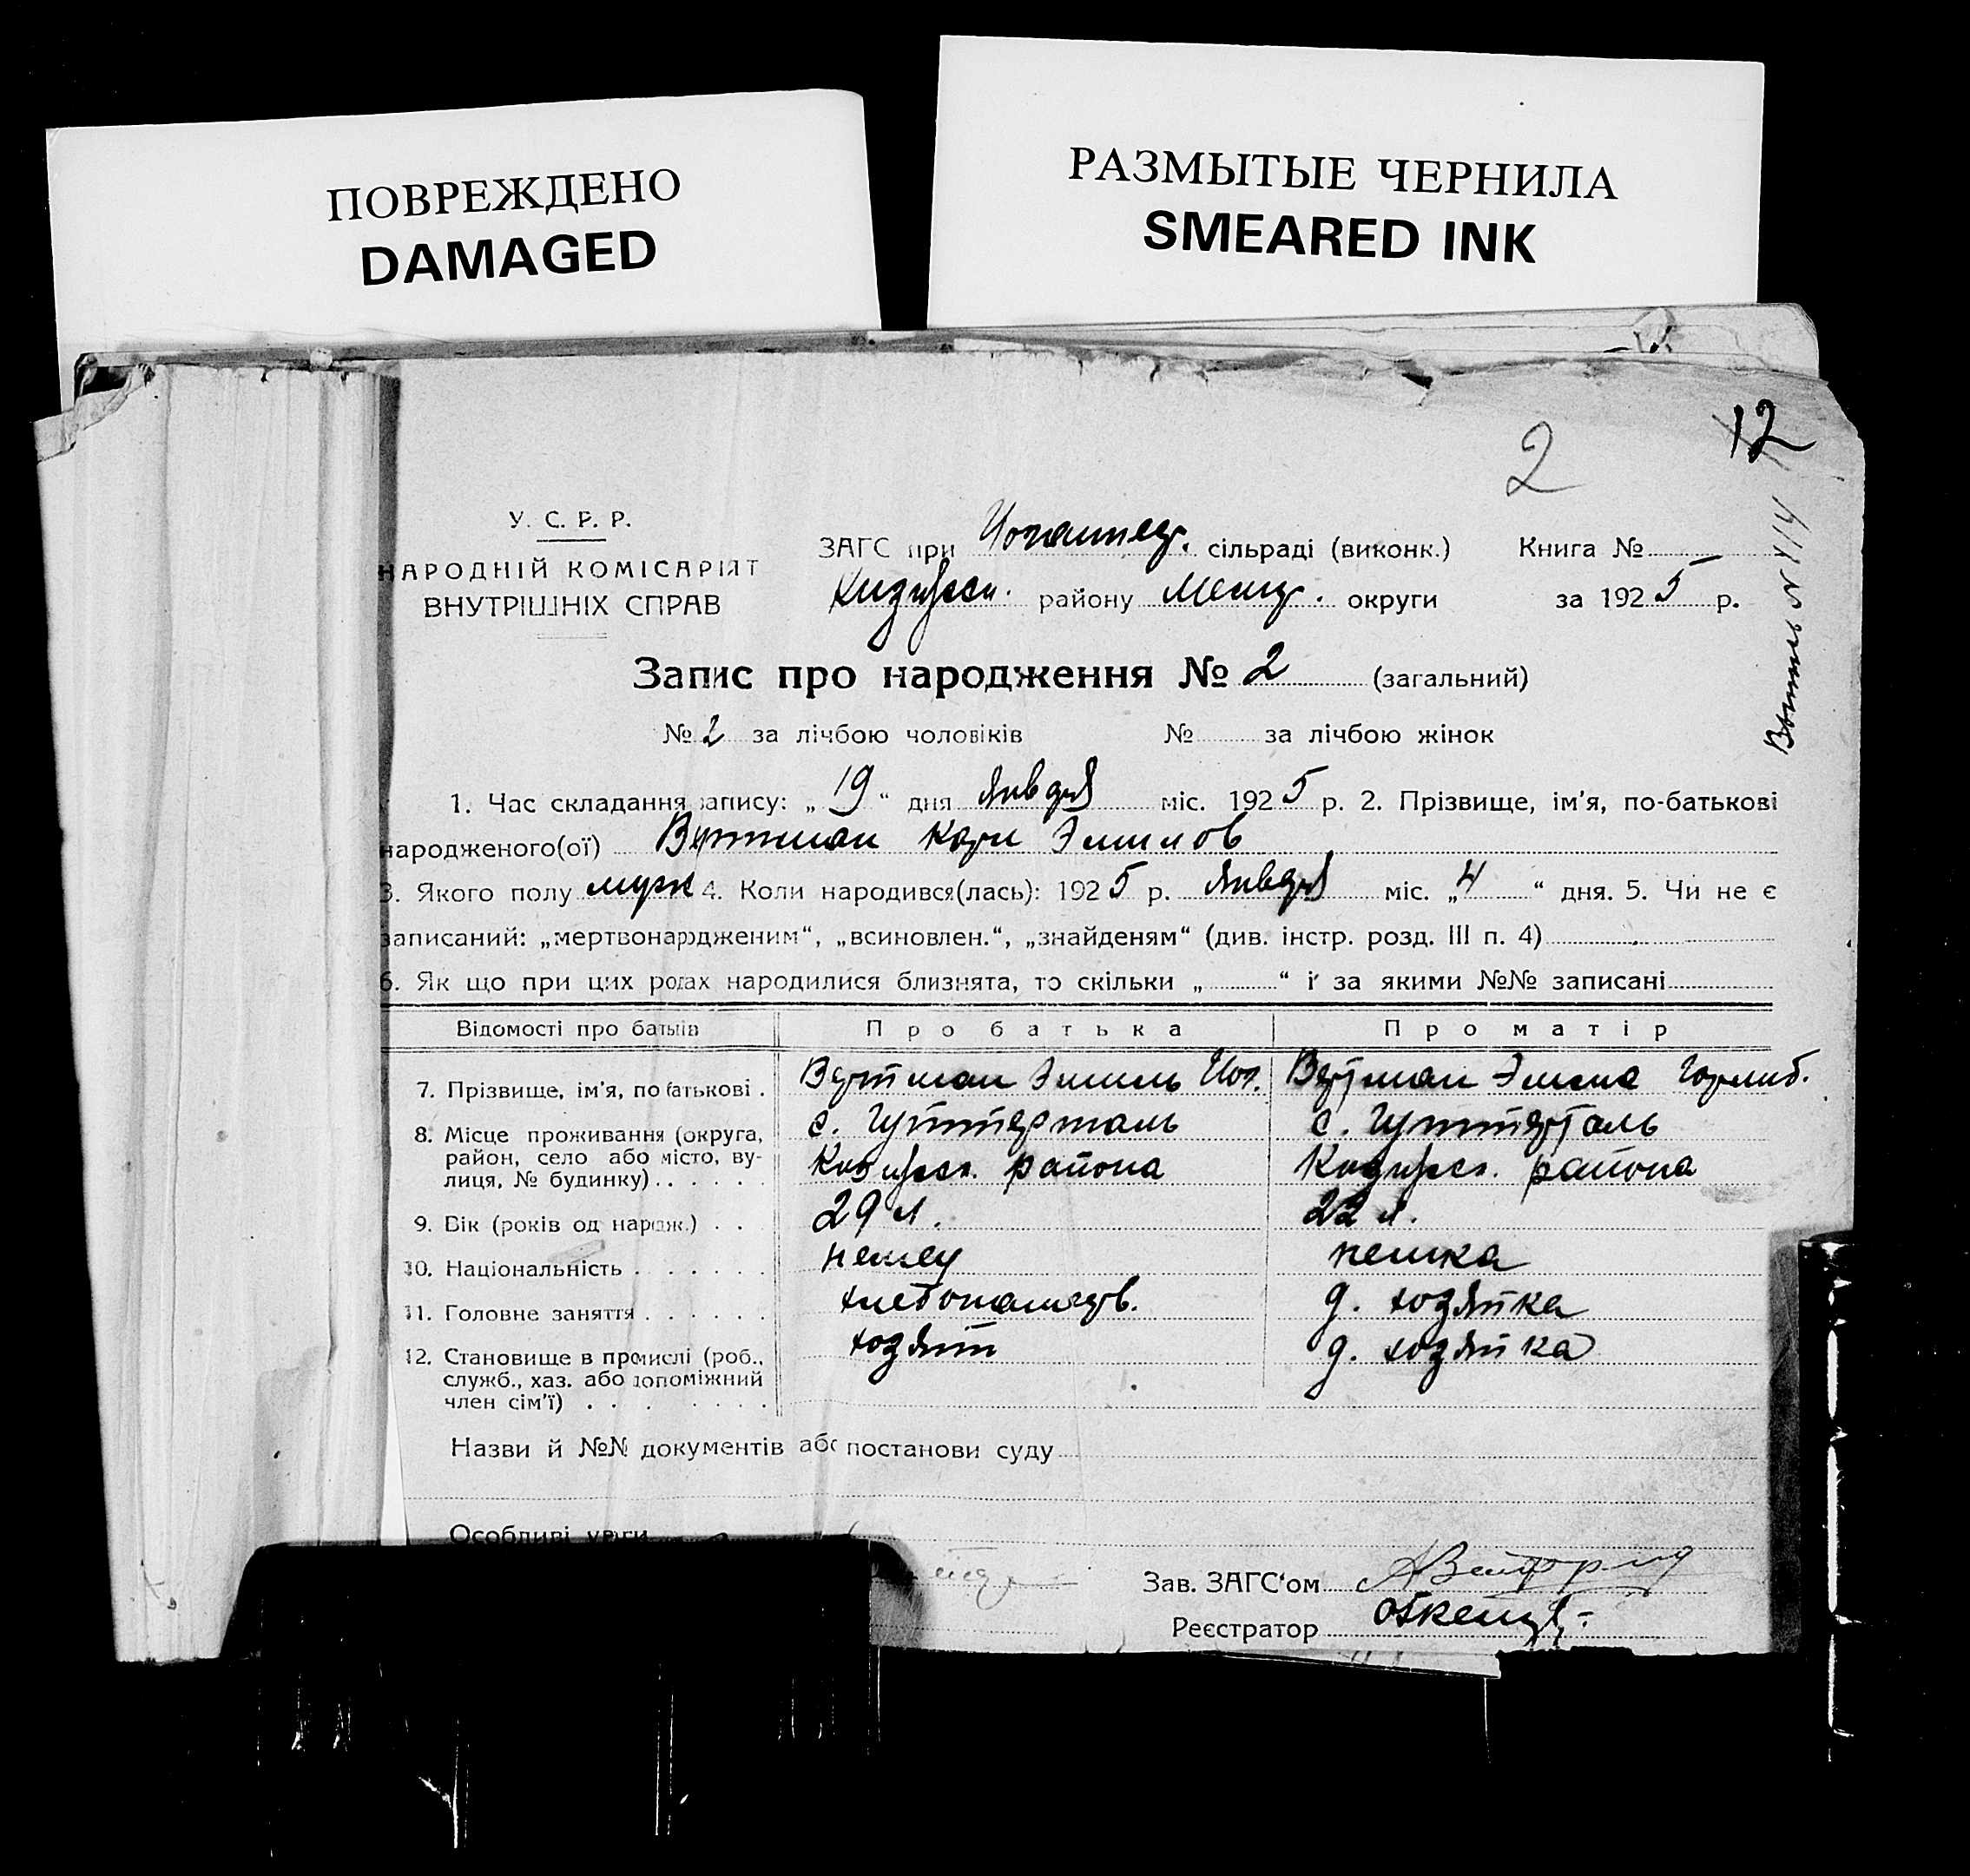 ПОВРЕЖДЕНО
DAMAGED
РАЗМЫТЫЕ ЧЕРНИЛА
SMEARED INK
12
2
У. С. Р. Р.
НАРОДНІЙ КОМІСАРІЯТ
ВНУТРІШНІХ СПРАВ
ЗАГС при сільраді (виконк.) Книга №
району округи за 1925 р.
Запис про народження № 2 (загальний)
№ 2 за лічбою чоловіків № за лічбою жінок
1. Час складання запису: „ 19 “ дня января міс. 1925 р. 2. Прізвище, ім'я, по-батькові
народженого(ої) Вертман Карл Эмилов
3. Якого полу муж 4. Коли народився(лась): 1925 р. января міс. „ 4 “ дня. 5. Чи не є
записаний: „мертвонародженим“, „всиновлен.“, „знайденям“ (див. інстр. розд. III п. 4)
6. Як що при цих родах народилися близнята, то скільки „ “ і за якими №№ записані
Відомості про батьків Про батька Про матір
7. Прізвище, ім'я, по батькові . Вертман Эмиль Иог. Вертман Эмма Готлиб.
8. Місце проживання (округа, с. Гуттерталь с. Гуттерталь
район, село або місто, ву- района района
лиця, № будинку) . . . . .
9. Вік (років од народж.) . . 29 л. 22 л.
10. Національність . . . . . . немец немка
11. Головне заняття . . . . . . хлебопашерв. д. хозяйка
12. Становище в промислі (роб., хозяин д. хозяйка
служб., хаз. або допоміжний
член сім'ї) . . . . . . .
Назви й №№ документів або постанови суду
Особливі уваги
Зав. ЗАГС'ом
Реєстратор